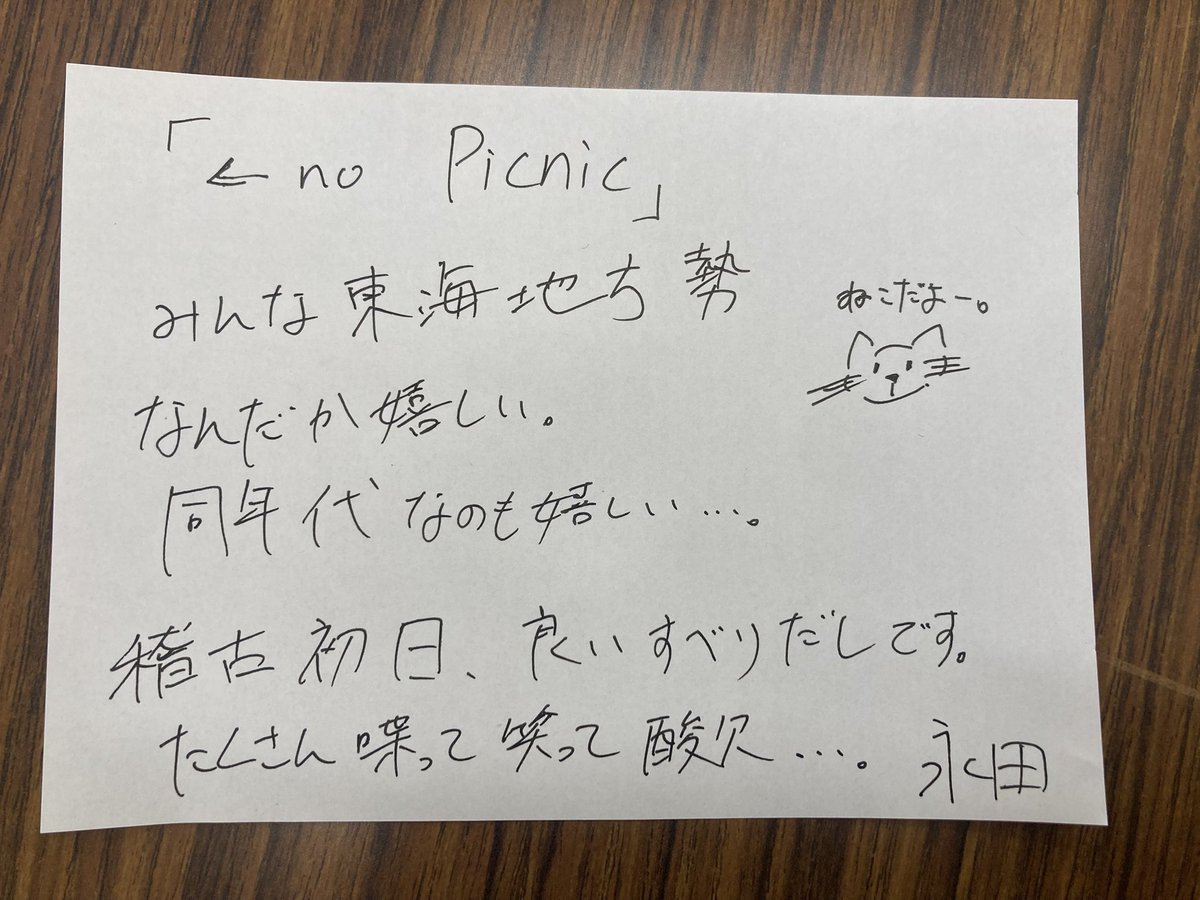 「← no Picnic」
みんな東海地方勢
ねこだよー。
なんだか嬉しい。
同年代なのも嬉しい…。
稽古初日、良いすべりだしです。
たくさん喋って笑って酸欠…。 永田